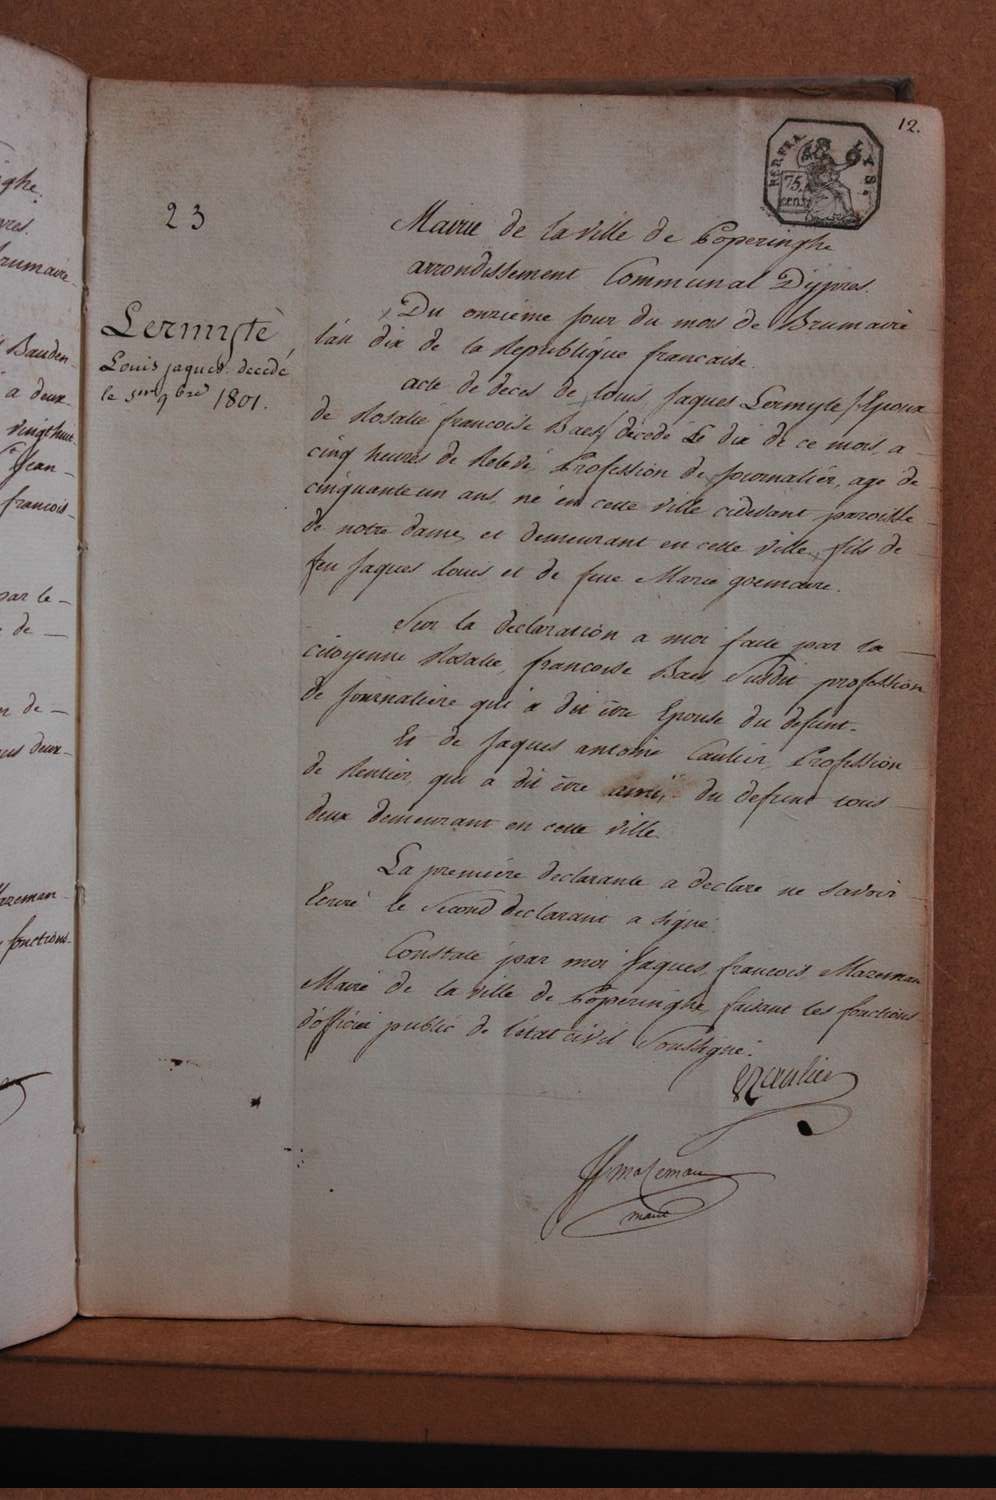 12.
REP. FRA.
LYS.
75
cent
23
Mairie de la ville de Poperinghe
arrondissement Communal D'ypres.
Lermytè
Louis jaques decedé
le 5me 9bre 1801.
Du onzieme jour du mois de Brumaire
l'an dix de la Republique francaise.
acte de deces de louis Jaques Lermyte / Epoux
de Rosalie francoise Baes / décédé Le dix de ce mois, a
cinq heures de Relevé, Profession de journalier, age de
cinquante un ans, né en cette ville cidevant paroisse
de notre dame, et demeurant en cette ville, fils de
feu Jaques louis et de feue Marie goemaere.
Sur la declaration a moi faite par la
citoyenne Rosalie, francoise Baes Susdit profession
de journaliere qui a dit être Epouse du defunt.
Et de Jaques antoine Caulier, Profession
de Rentier, qui a dit être ami du defunt tous
deux demeurant en cette ville.
La premiére declarante a declare ne savoir
Ecrire le Second declarant a signé.
Constaté par moi Jaques francois Mazeman
Maire de la ville de Poperinghe, faisant les fonctions
d'officier public de l'état civil Soussigné.
caulier
Mazeman
maire
ghe.
brumaire
Bauden
a deux
vingt huit
Jean
francois
par le
de
de
deux
Mazeman
fonctions